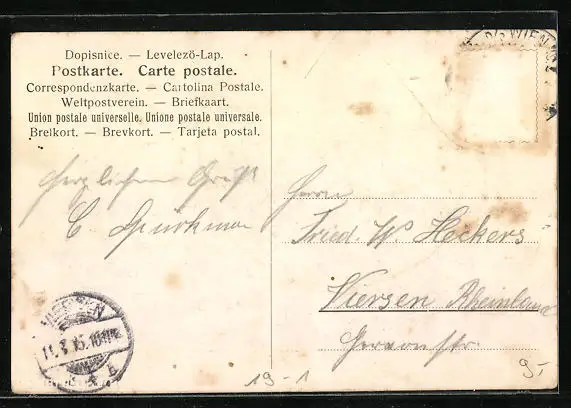 Dopisnice. — Levelezö-Lap.
Postkarte. Carte postale.
Correspondenzkarte. — Cartolina Postale.
Weltpostverein. — Briefkaart.
Union postale universelle. Unione postale universale.
Brelkort. — Brevkort. — Tarjeta postal.
WIEN
Herzlichen Gruß
C.
Herrn
Fried. W. Heckers
Viersen Rheinland
Gereonstr.
VIERSEN
19-1
9,-